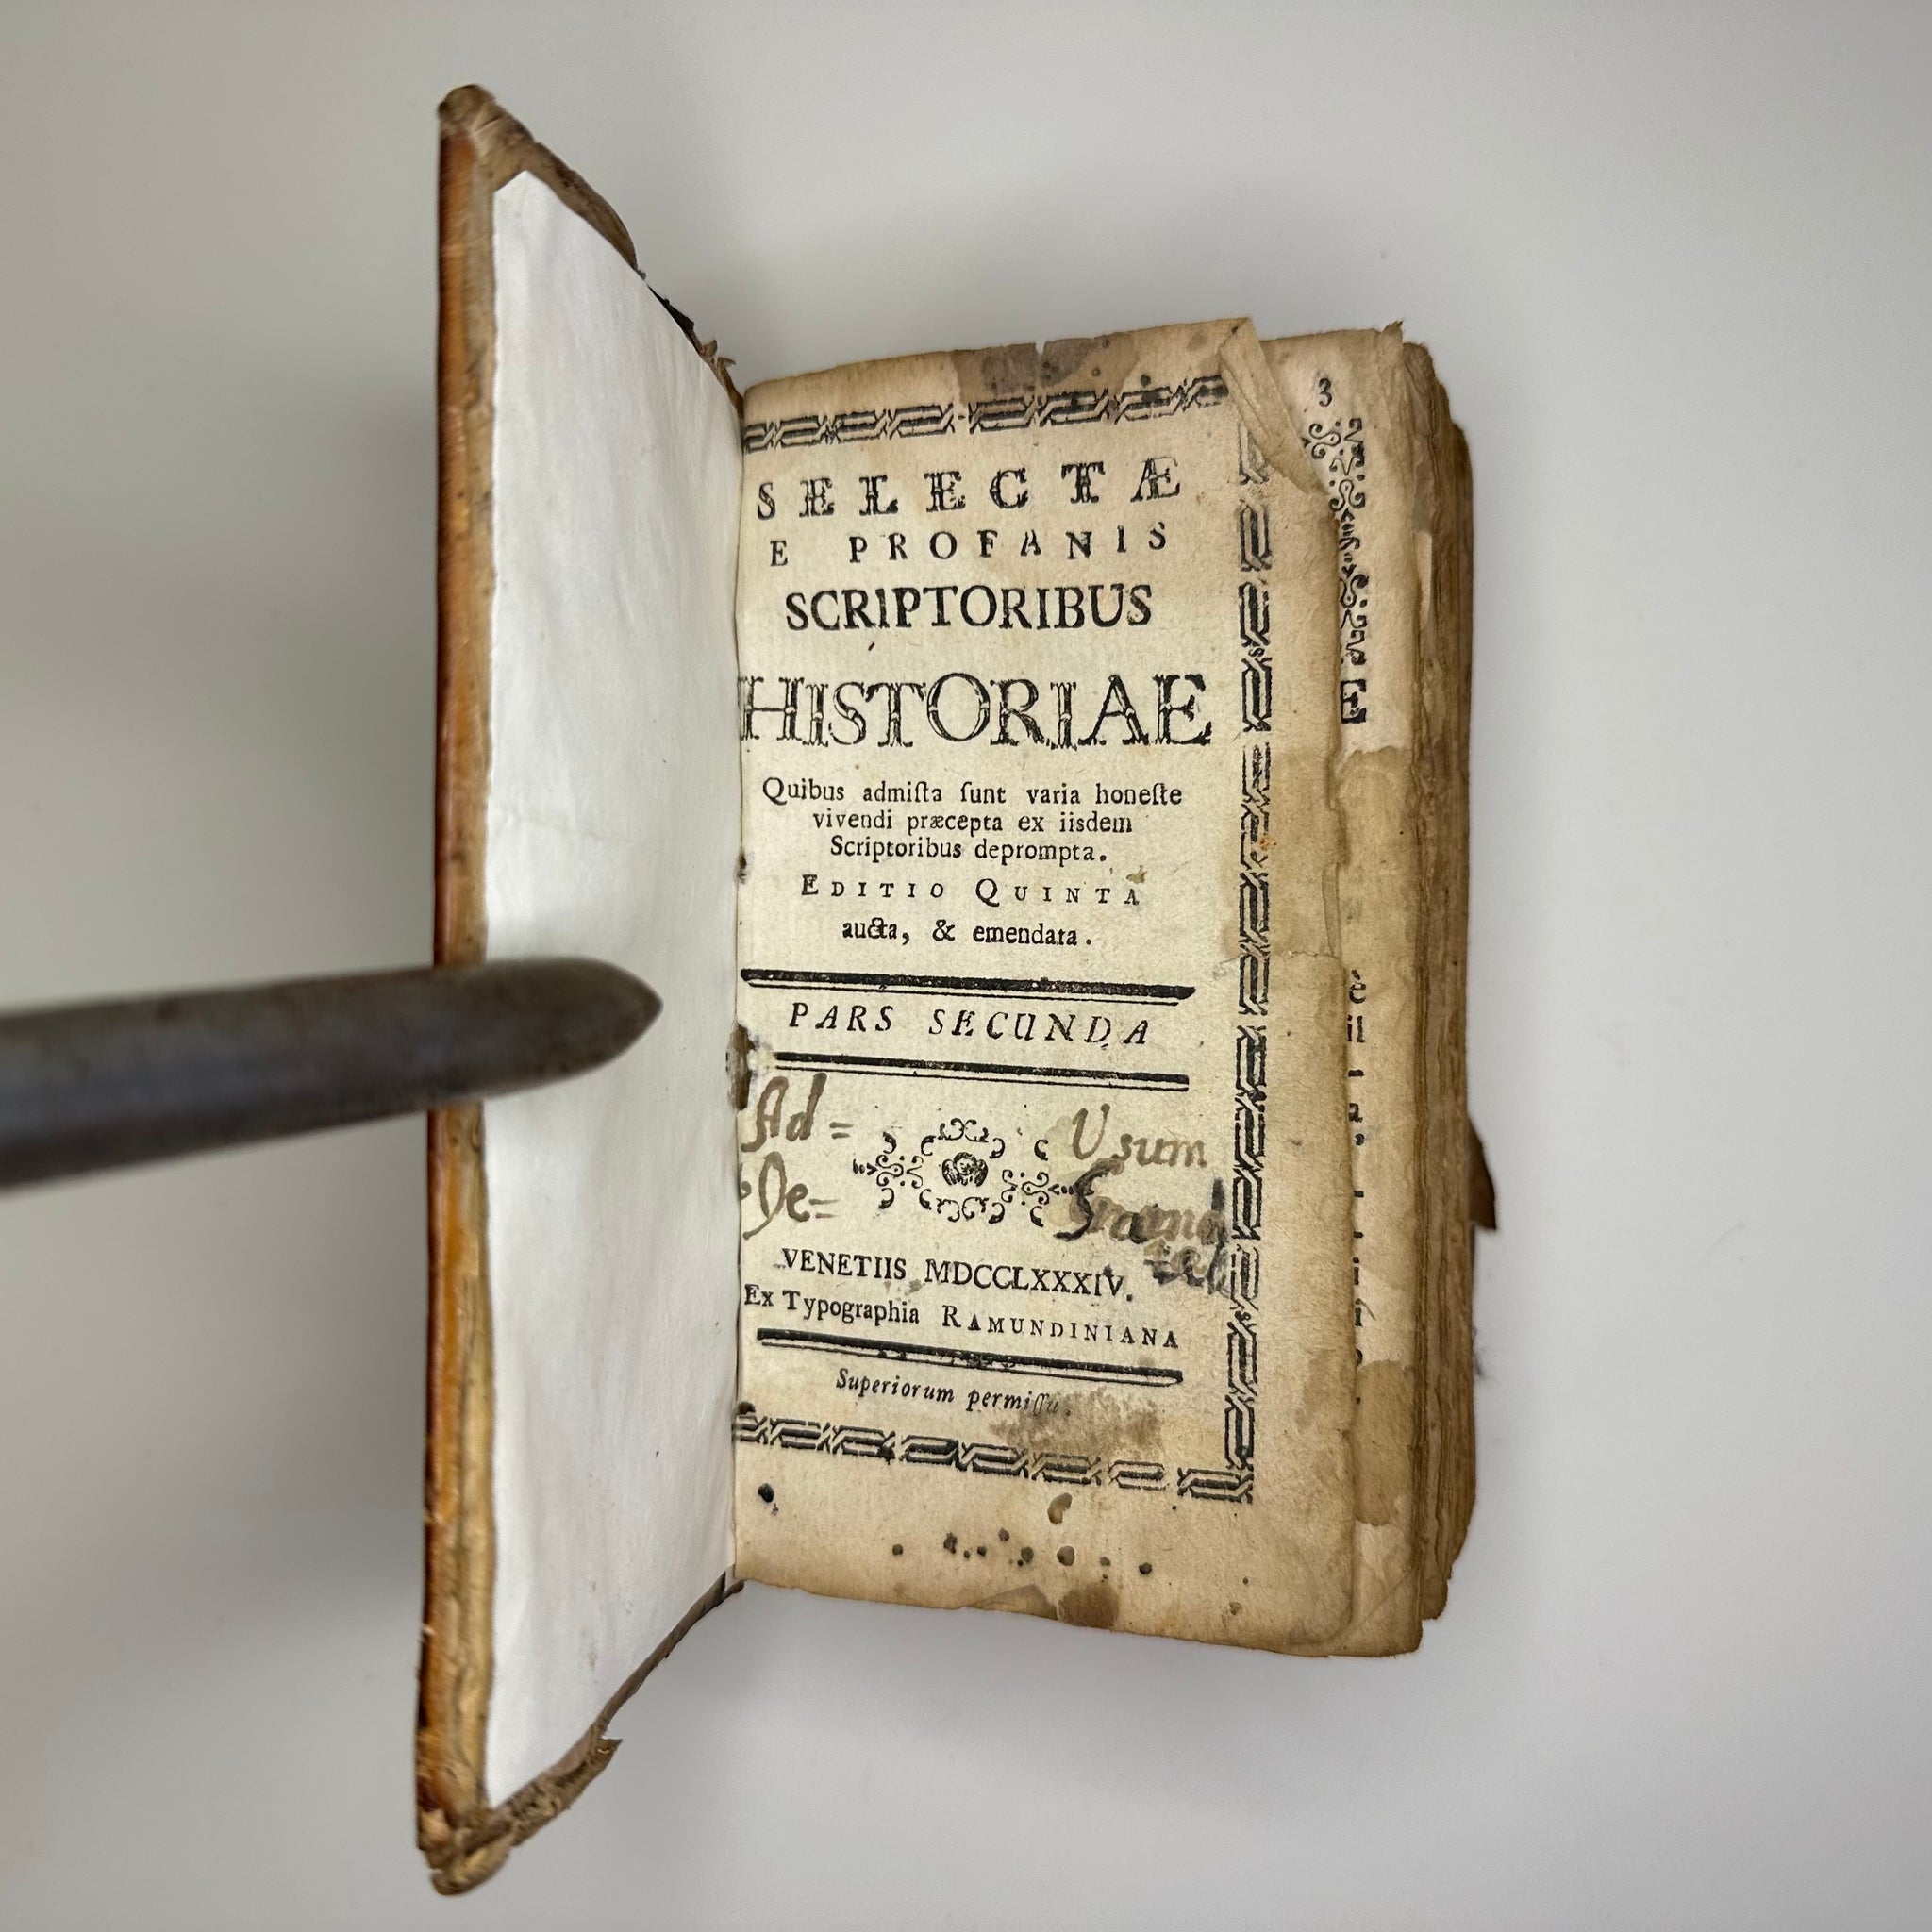 SELECTÆ
E PROFANIS
SCRIPTORIBUS
HISTORIAE
Quibus admiſta ſunt varia honeſte
vivendi præcepta ex iisdem
Scriptoribus deprompta.
EDITIO QUINTA
aucta, & emendata.
PARS SECUNDA
Ad= Usum
De=
VENETIIS MDCCLXXXIV.
Ex Typographia RAMUNDINIANA
Superiorum permiſſu.
3
E